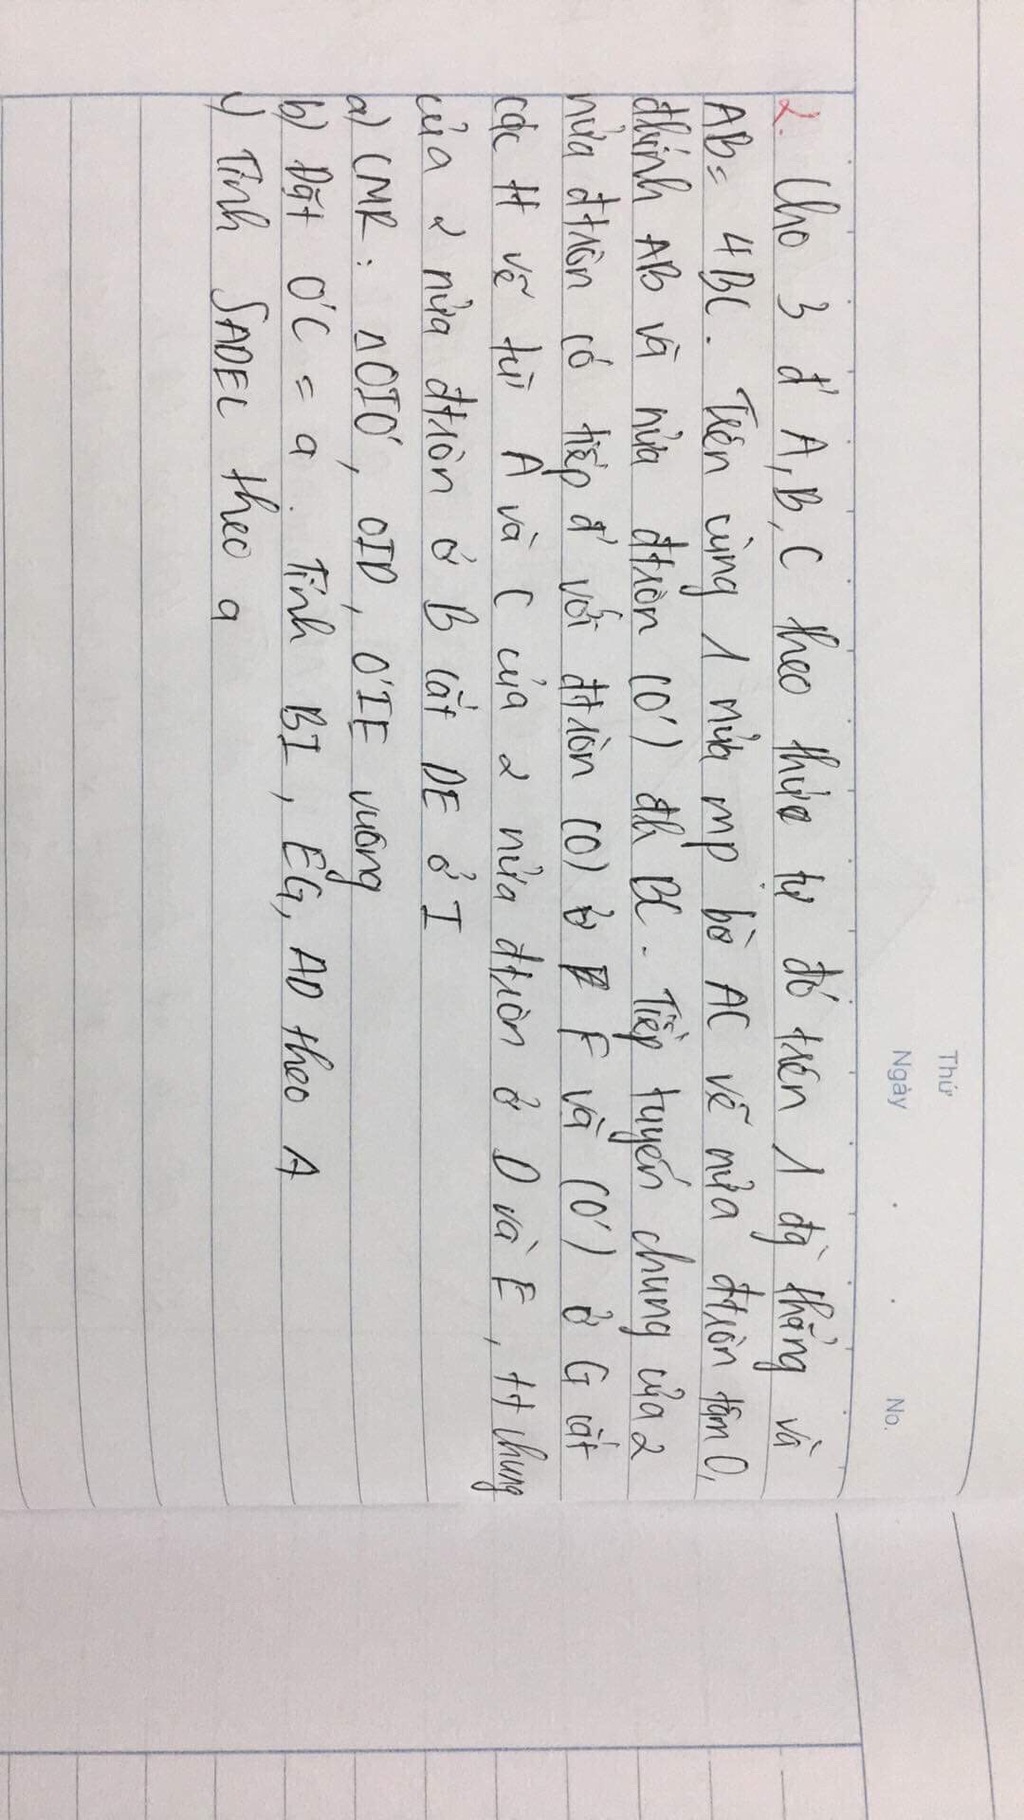 Thứ
Ngày . . No.
2. Cho 3 đ' A, B, C theo thứ tự đó trên 1 đg` thẳng và
AB = 4BC. Trên cùng 1 nửa mp bờ AC vẽ nửa đtròn tâm O,
đkính AB và nửa đtròn (O') đk BC. Tiếp tuyến chung của 2
nửa đtròn có tiếp đ' với đtròn (O) ở F và (O') ở G cắt
các tt vẽ từ A và C của 2 nửa đtròn ở D và E, tt chung
của 2 nửa đtròn ở B cắt DE ở I
a) CMR: ΔOIO', OID, O'IE vuông
b) Đặt O'C = a. Tính BI, EG, AD theo A
c) Tính SADEC theo a